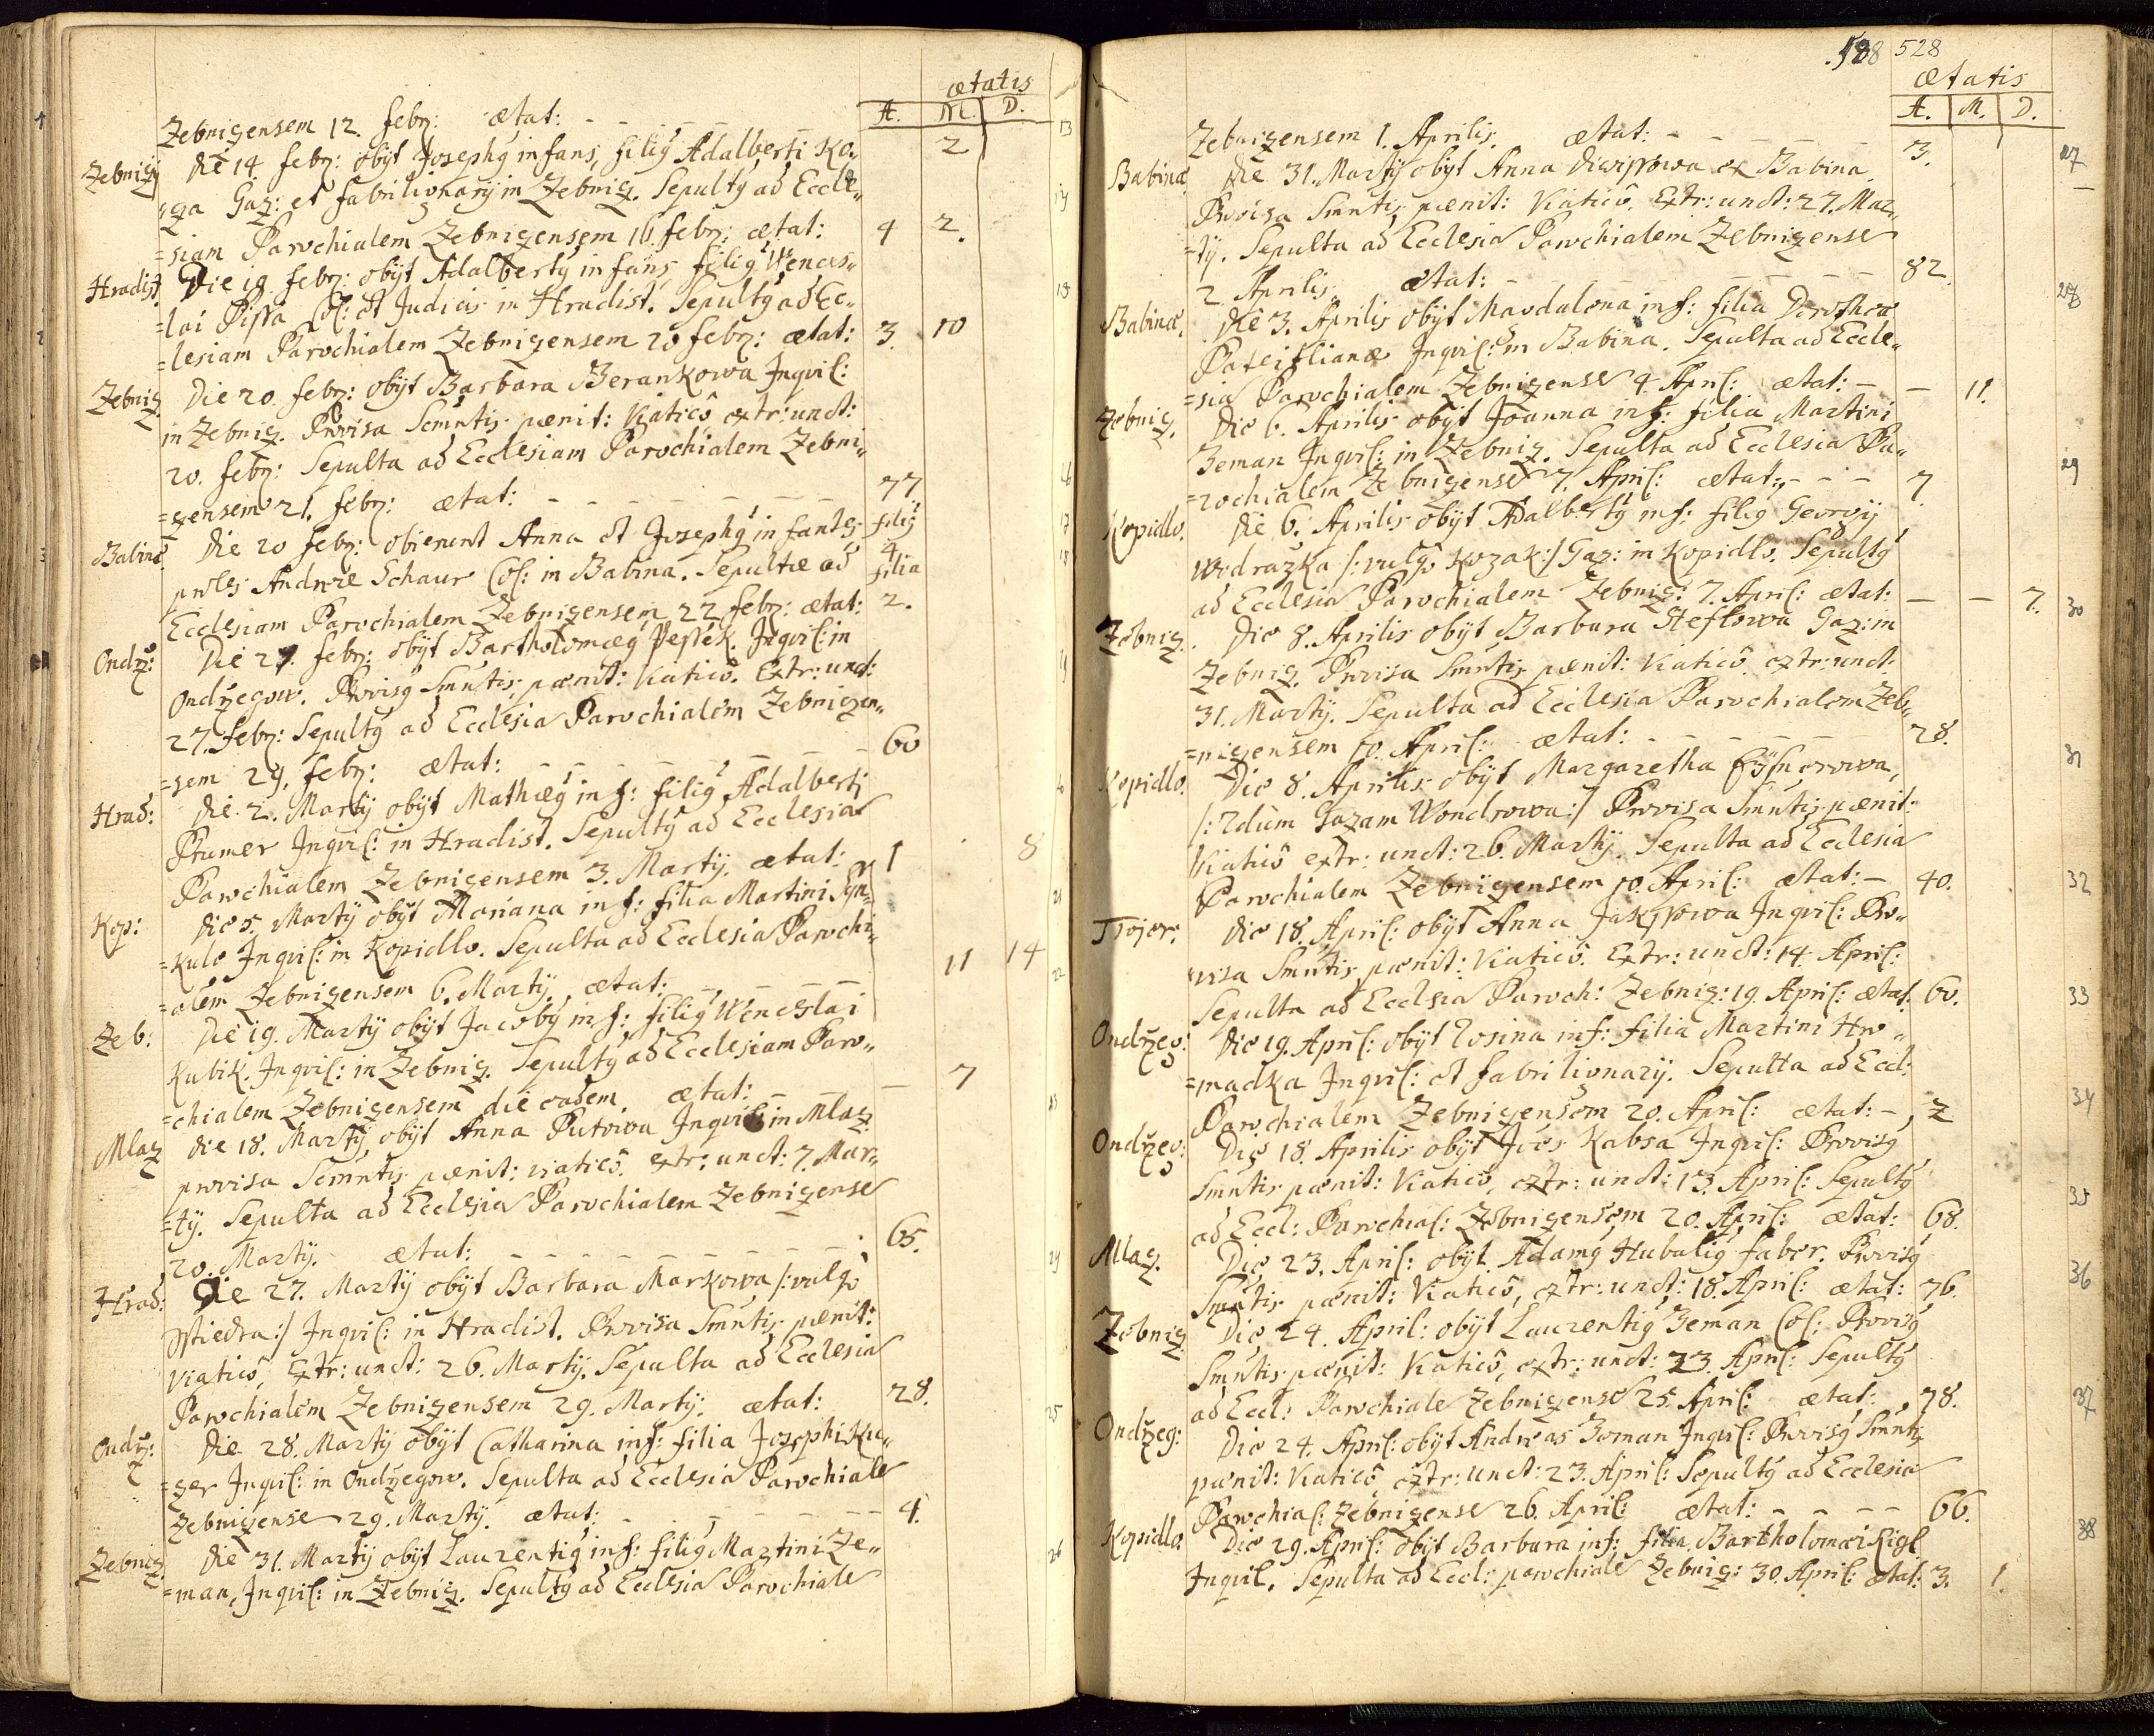 ætatis
A. M. D.
Zebnizensem 12. febr: ætat: - - - - 2
Zebniz Die 14. febr: obÿt Josephg infans, filig Adalberti Ko„
„za Gaz: et fabrilignarÿ in Zebniz. Sepultg ad Eccle„
=siam Parochialem Zebnizensem 16. febr: ætat: 4 2.
Hradist. Die 19. febr: obÿt Adalbertg infans, filig Wences„
=lai Pissa Col: et Judicis in Hradist. Sepultg ad Ec„
=lesiam Parochialem Zebnizensem 20 febr: ætat: 3. 10
Zebniz. Die 20. febr: obÿt Barbara Berankowa Jnqvil:
in Zebniz. Provisa Scmntis pænit: Viaticô, extr: unct:
20. febr: Sepulta ad Ecclesiam Parochialem Zebni„
=zensem 21. febr: ætat: - - - - - - - 77.
Babinæ Die 20 febr: obierunt Anna et Josephg infantes filig
proles Andreæ Schaur Col: in Babina. Sepultæ ad 4 filia
Ecclesiam Parochialem Zebnizensem 22 febr: ætat: 2.
Ondrz: Die 27. febr: obÿt Bartholomæg Pessek. Jnqvil: in
Ondrzegow. Provisg Smntis, pænit: Viaticô. Extr: unct:
27. febr: Sepultg ad Ecclesia Parochialem Zebnizen„
=sem 29. febr: ætat: - - - - - - - 60
Hrad: Die 2. Martÿ obÿt Mathæg inf: filig Adalberti
Prumer Jnqvil: in Hradist. Sepultg ad Ecclesia
Parochialem Zebnizensem 3. Martÿ. ætat: 1 . 8
Kop: Die 5. Martÿ obÿt Mariana inf: filia Martini Syn„
=kule Jnqvil: in Kopidlo. Sepulta ad Ecclesia Parochi„
=alem Zebnizensem 6. Martÿ. ætat: - - - - 11 14
Zeb: Die 19. Martÿ obÿt Jacobg inf: filig Wenceslai
Kubik. Jnqvil: in Zebniz. Sepultg ad Ecclesiam Paro„
=chialem Zebnizensem die eadem. ætat: - - - 7
Mlaz Die 18. Martÿ obÿt Anna Putowa Jnqvil: in Mlaz
provisa Scmntis pænit: viaticô. extr: unct: 7. Mar„
=tÿ. Sepulta ad Ecclesia Parochialem Zebnizense
20. Martÿ. ætat: - - - - - - - - 65.
Hrad: Die 27. Martÿ obÿt Barbara Markowa /: vulgo
Sstiedra:/ Jnqvil: in Hradist. Provisa Smntis, pænit:
Viaticô, Extr: unct: 26. Martÿ. Sepulta ad Ecclesia
Parochialem Zebnizensem 29. Martÿ. ætat: 28.
Ondrz: Die 28. Martÿ obÿt Catharina inf: filia Josephi Ku„
=zer Jnqvil: in Ondrzegow. Sepulta ad Ecclesia Parochiale
Zebnizense 29. Martÿ. ætat: - - - - - - 4.
Zebniz. Die 31. Martÿ obÿt Laurentig inf: filig Martini Ze„
=man, Jnqvil: in Zebniz. Sepultg ad Ecclesia Parochiale
528
ætatis
A. M. D.
Zebnizensem 1. Aprilis. ætat: - - - - - 3.
Babinæ Die 31. Martÿ obÿt Anna Diwissowa ex Babina 27
Provisa Smntis, pænit: Viaticô. Extr: unct: 27. Mar„
=tÿ. Sepulta ad Ecclesia Parochialem Zebnizense
2. Aprilis. ætat: - - - - - - 82.
Babinæ. Die 3. Aprilis obÿt Magdalena inf: filia Dorothea 28
Pateiflianæ Jnqvil: in Babina. Sepulta ad Eccle„
=sia Parochialem Zebnizense 4. April: ætat: - - 11.
Zebniz. Die 6. Aprilis obÿt Joanna inf: filia Martini
Zeman Jnqvil: in Zebniz. Sepulta ad Ecclesia Pa„ 29
=rochialem Zebnizense 7. April: ætat: - - - 7.
Kopidlo. Die 6. Aprilis obÿt Adalbertg inf: filig Georgÿ
Wodrazka /: vulgo Kozak:/ Gaz: in Kopidlo. Sepultg
ad Ecclesia Parochialem Zebniz: 7. April: ætat: - - 7. 30
Zebniz. Die 8. Aprilis obÿt Barbara Steflowa Gaz: in
Zebniz. Provisa Smntis pænit: Viaticô. extr: unct:
31. Martÿ. Sepulta ad Ecclesia Parochialem Zeb„
=nizensem 10. April: ætat: - - - - - 28.
Kopidlo. Die 8. Aprilis obÿt Margaretha 31
/: Gazam Wondrowa:/ Provisa Smntis pænit:
Viaticô extr: unct: 26. Martÿ. Sepulta ad Ecclesia
Parochialem Zebnizensem 10. April: ætat: - 40. 32
Trojor. Die 18. April: obÿt Anna Jakssowa Jnqvil: Pro„
„visa Smntis, pænit: Viaticô. Extr: unct: 14. April:
Sepulta ad Ecclsia Paroch: Zebniz: 19. April: ætat: 60. 33
Ondrzeg: Die 19. April: obÿt Rosina inf: filia Martini Hro„
=madka Jnqvil: et fabrilignarÿ. Sepulta ad Eccl:
Parochialem Zebnizensem 20. April: ætat: -, 2 34
Ondrzeg: Die 18. Aprilis obÿt Joẽs Kabsa Jnqvil: Provisg
Smntis pænit: Viaticô, extr: unct: 13. April: Sepultg
ad Eccl: Parochial: Zebnizensem 20. April: ætat: 68. 35
Mlaz. Die 23. April: obÿt Adamg Hubalig faber. Provisg
Smntis pænit: Viaticô, extr: unct: 18. April: ætat: 76. 36
Zebniz. Die 24. April: obÿt Laurentig Zeman Col: Provisg
Smntis pænit: Viaticô, extr: unct: 23. April: Sepultg
ad Eccl: Parochiale Zebnizense 25. April: ætat: 78. 37
Ondrzeg: Die 24. April: obÿt Andreas Zeman Jnqvil: Provisg Smntis
pænit: Viaticô, extr: unct: 23. April: Sepultg ad Ecclesia
Parochial: Zebnizense 26. April: ætat: - - - - 66.
Kopidlo. Die 29. April: obÿt Barbara inf: filia Bartholomæi Figl 38
Jnqvil. Sepulta ad Eccl: parochiale Zebniz: 30. April: ætat: 3. 1.